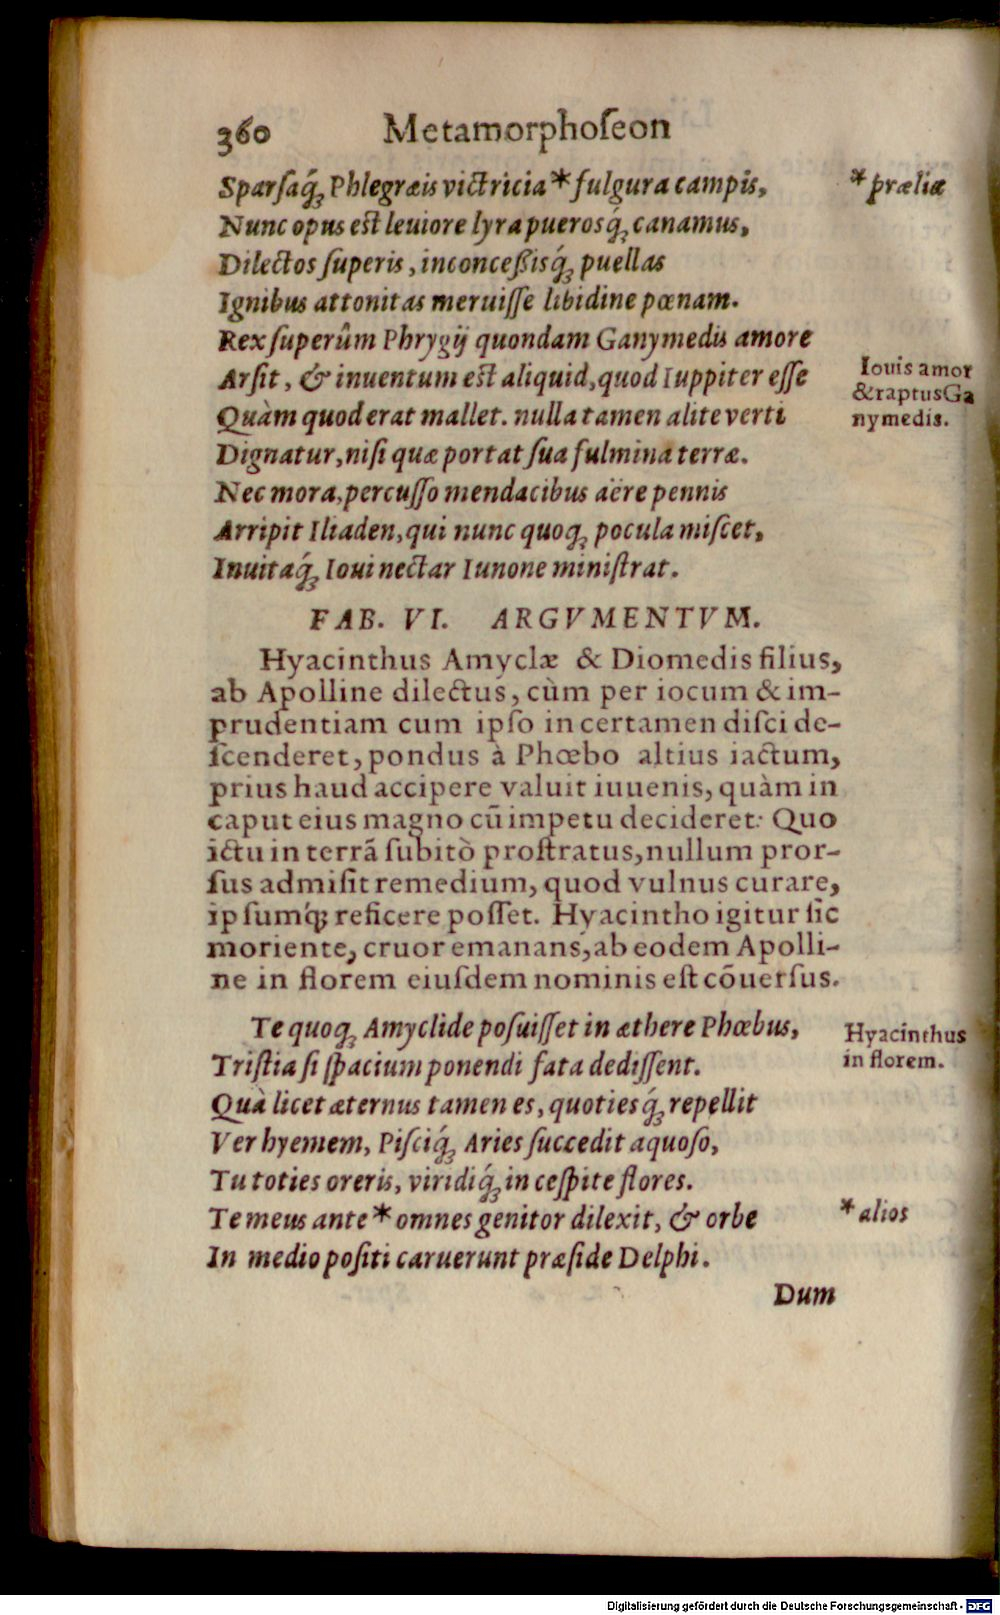 360 Metamorphoſeon
Sparſaq́; Phlegræis victricia * fulgura campis,
* præliæ
Nunc opus est leuiore lyra puerosq́; canamus,
Dilectos ſuperis, inconceßisq́; puellas
Ignibus attonitas meruiſſe libidine pœnam.
Rex ſuperûm Phrygij quondam Ganymedis amore
Arſit, & inuentum est aliquid, quod Iuppiter eſſe
Quàm quod erat mallet. nulla tamen alite verti
Dignatur, niſi quæ portat ſua fulmina terræ.
Iouis amor
& raptus Ga
nymedis.
Nec mora, percuſſo mendacibus aëre pennis
Arripit Iliaden, qui nunc quoq; pocula miſcet,
Inuitaq́; Ioui nectar Iunone miniſtrat.
FAB. VI. ARGVMENTVM.
Hyacinthus Amyclæ & Diomedis filius,
ab Apolline dilectus, cùm per iocum & im-
prudentiam cum ipſo in certamen diſci de-
ſcenderet, pondus à Phœbo altius iactum,
prius haud accipere valuit iuuenis, quàm in
caput eius magno cū impetu decideret: Quo
ictu in terrā ſubitò proſtratus, nullum pror-
ſus admiſit remedium, quod vulnus curare,
ipſumq́; reficere poſſet. Hyacintho igitur ſic
moriente, cruor emanans, ab eodem Apolli-
ne in florem eiuſdem nominis eſt cōuerſus.
Te quoq; Amyclide poſuiſſet in æthere Phœbus,
Triſtia ſi ſpacium ponendi fata dediſſent.
Hyacinthus
in florem.
Quà licet æternus tamen es, quotiesq́; repellit
Ver hyemem, Piſciq́; Aries ſuccedit aquoſo,
Tu toties oreris, viridiq́; in ceſpite flores.
Te meus ante * omnes genitor dilexit, & orbe
* alios
In medio poſiti caruerunt præſide Delphi.
Dum
Digitalisierung gefördert durch die Deutsche Forschungsgemeinschaft - DFG